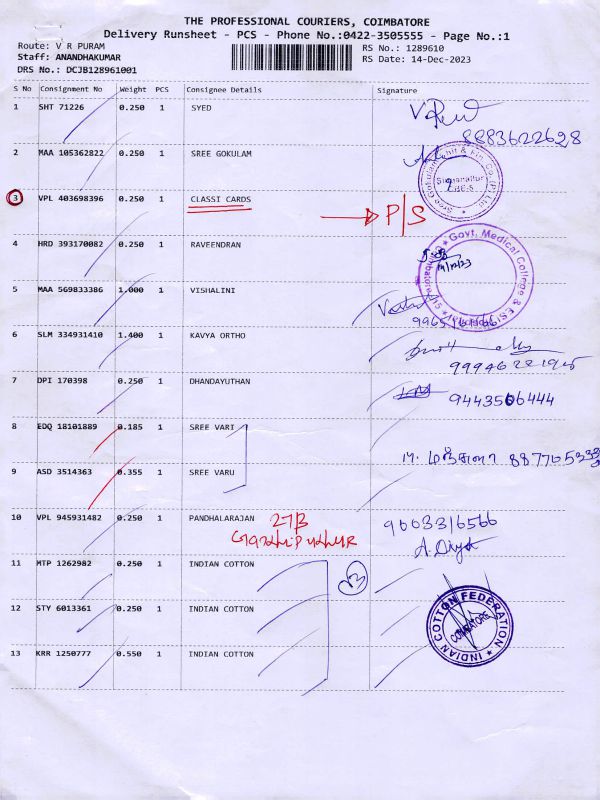 THE PROFESSIONAL COURIERS, COIMBATORE
Delivery Runsheet - PCS - Phone No.:0422-3505555 - Page No.:1
Route: V R PURAM
RS No.: 1289610
Staff: ANANDHAKUMAR
RS Date: 14-Dec-2023
DRS No.: DCJB128961001
S No Consignment No Weight PCS Consignee Details Signature
1 SHT 71226 0.250 1 SYED
8883622628
2 MAA 105362822 0.250 1 SREE GOKULAM
3 VPL 403698396 0.250 1 CLASSI CARDS
P/S
4 HRD 393170082 0.250 1 RAVEENDRAN
Govt. Medical College & ESI
5 MAA 569833386 1.000 1 VISHALINI
6 SLM 334931410 1.400 1 KAVYA ORTHO
7 DPI 170398 0.250 1 DHANDAYUTHAN
9443506444
8 EDQ 18101889 0.185 1 SREE VARI
9 ASD 3514363 0.355 1 SREE VARU
10 VPL 945931482 0.250 1 PANDHALARAJAN 27B
9003316566
11 MTP 1262982 0.250 1 INDIAN COTTON
12 STY 6013361 0.250 1 INDIAN COTTON
13 KRR 1250777 0.550 1 INDIAN COTTON
INDIAN COTTON FEDERATION
COIMBATORE